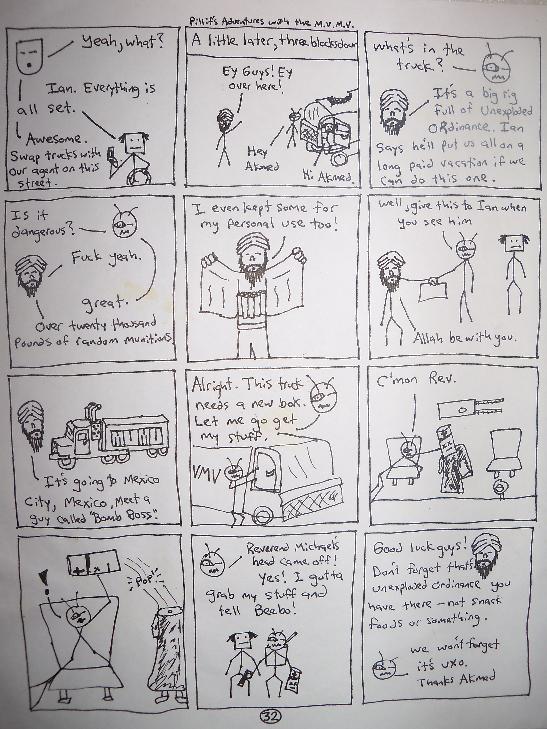 Pillif's Adventures with the M.V.M.V.
Yeah, what?
Ian. Everything is
all set.
Awesome.
Swap trucks with
our agent on this
street.
A little later, three blocks down
Ey Guys! Ey
over here!
Hey
Akmed
Hi Akmed.
what's in the
truck?
It's a big rig
full of Unexploded
ORdinance. Ian
Says he'll put us all on a
long paid vacation if we
can do this one.
Is it
dangerous?
Fuck yeah.
great.
Over twenty thousand
pounds of random munitions.
I even kept some for
my personal use too!
well, give this to Ian when
you see him
Allah be with you.
It's going to Mexico
City, Mexico, Meet a
guy called "Bomb Boss".
Alright. This truck
needs a new box.
Let me go get
my stuff.
VMV
C'mon Rev.
!
POP
Reverend Michael's
head came off!
Yes! I gotta
grab my stuff and
tell Beebo!
Good luck guys!
Don't forget that's
unexploded ordinance you
have there - not snack
foods or something.
we won't forget
it's UXO.
Thanks Akmed
32